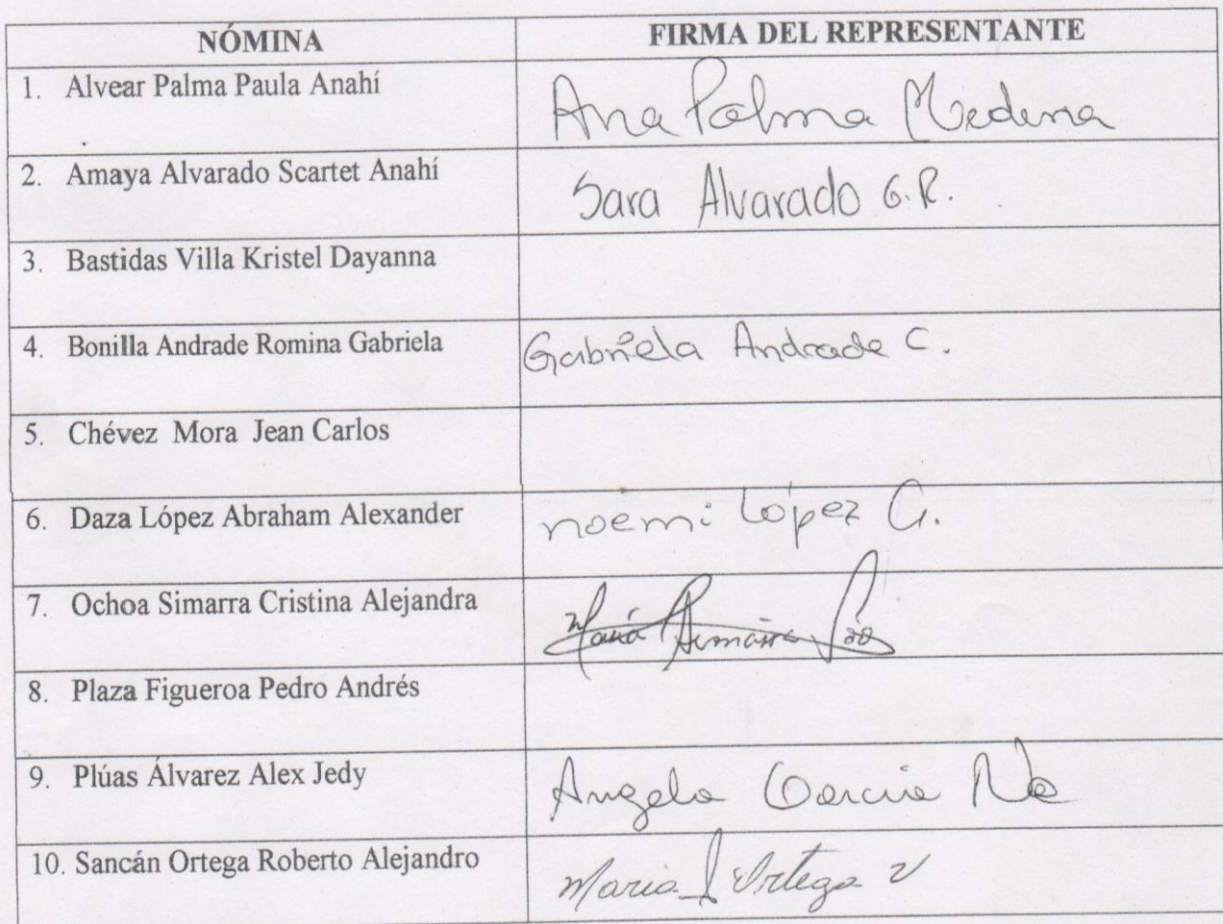 NÓMINA FIRMA DEL REPRESENTANTE
1. Alvear Palma Paula Anahí Ana Palma Medina
2. Amaya Alvarado Scartet Anahí Sara Alvarado G.R.
3. Bastidas Villa Kristel Dayanna
4. Bonilla Andrade Romina Gabriela Gabriela Andrade C.
5. Chévez Mora Jean Carlos
6. Daza López Abraham Alexander noemi López G.
7. Ochoa Simarra Cristina Alejandra María
8. Plaza Figueroa Pedro Andrés
9. Plúas Álvarez Alex Jedy Angela Garcia
10. Sancán Ortega Roberto Alejandro Maria Ortega V